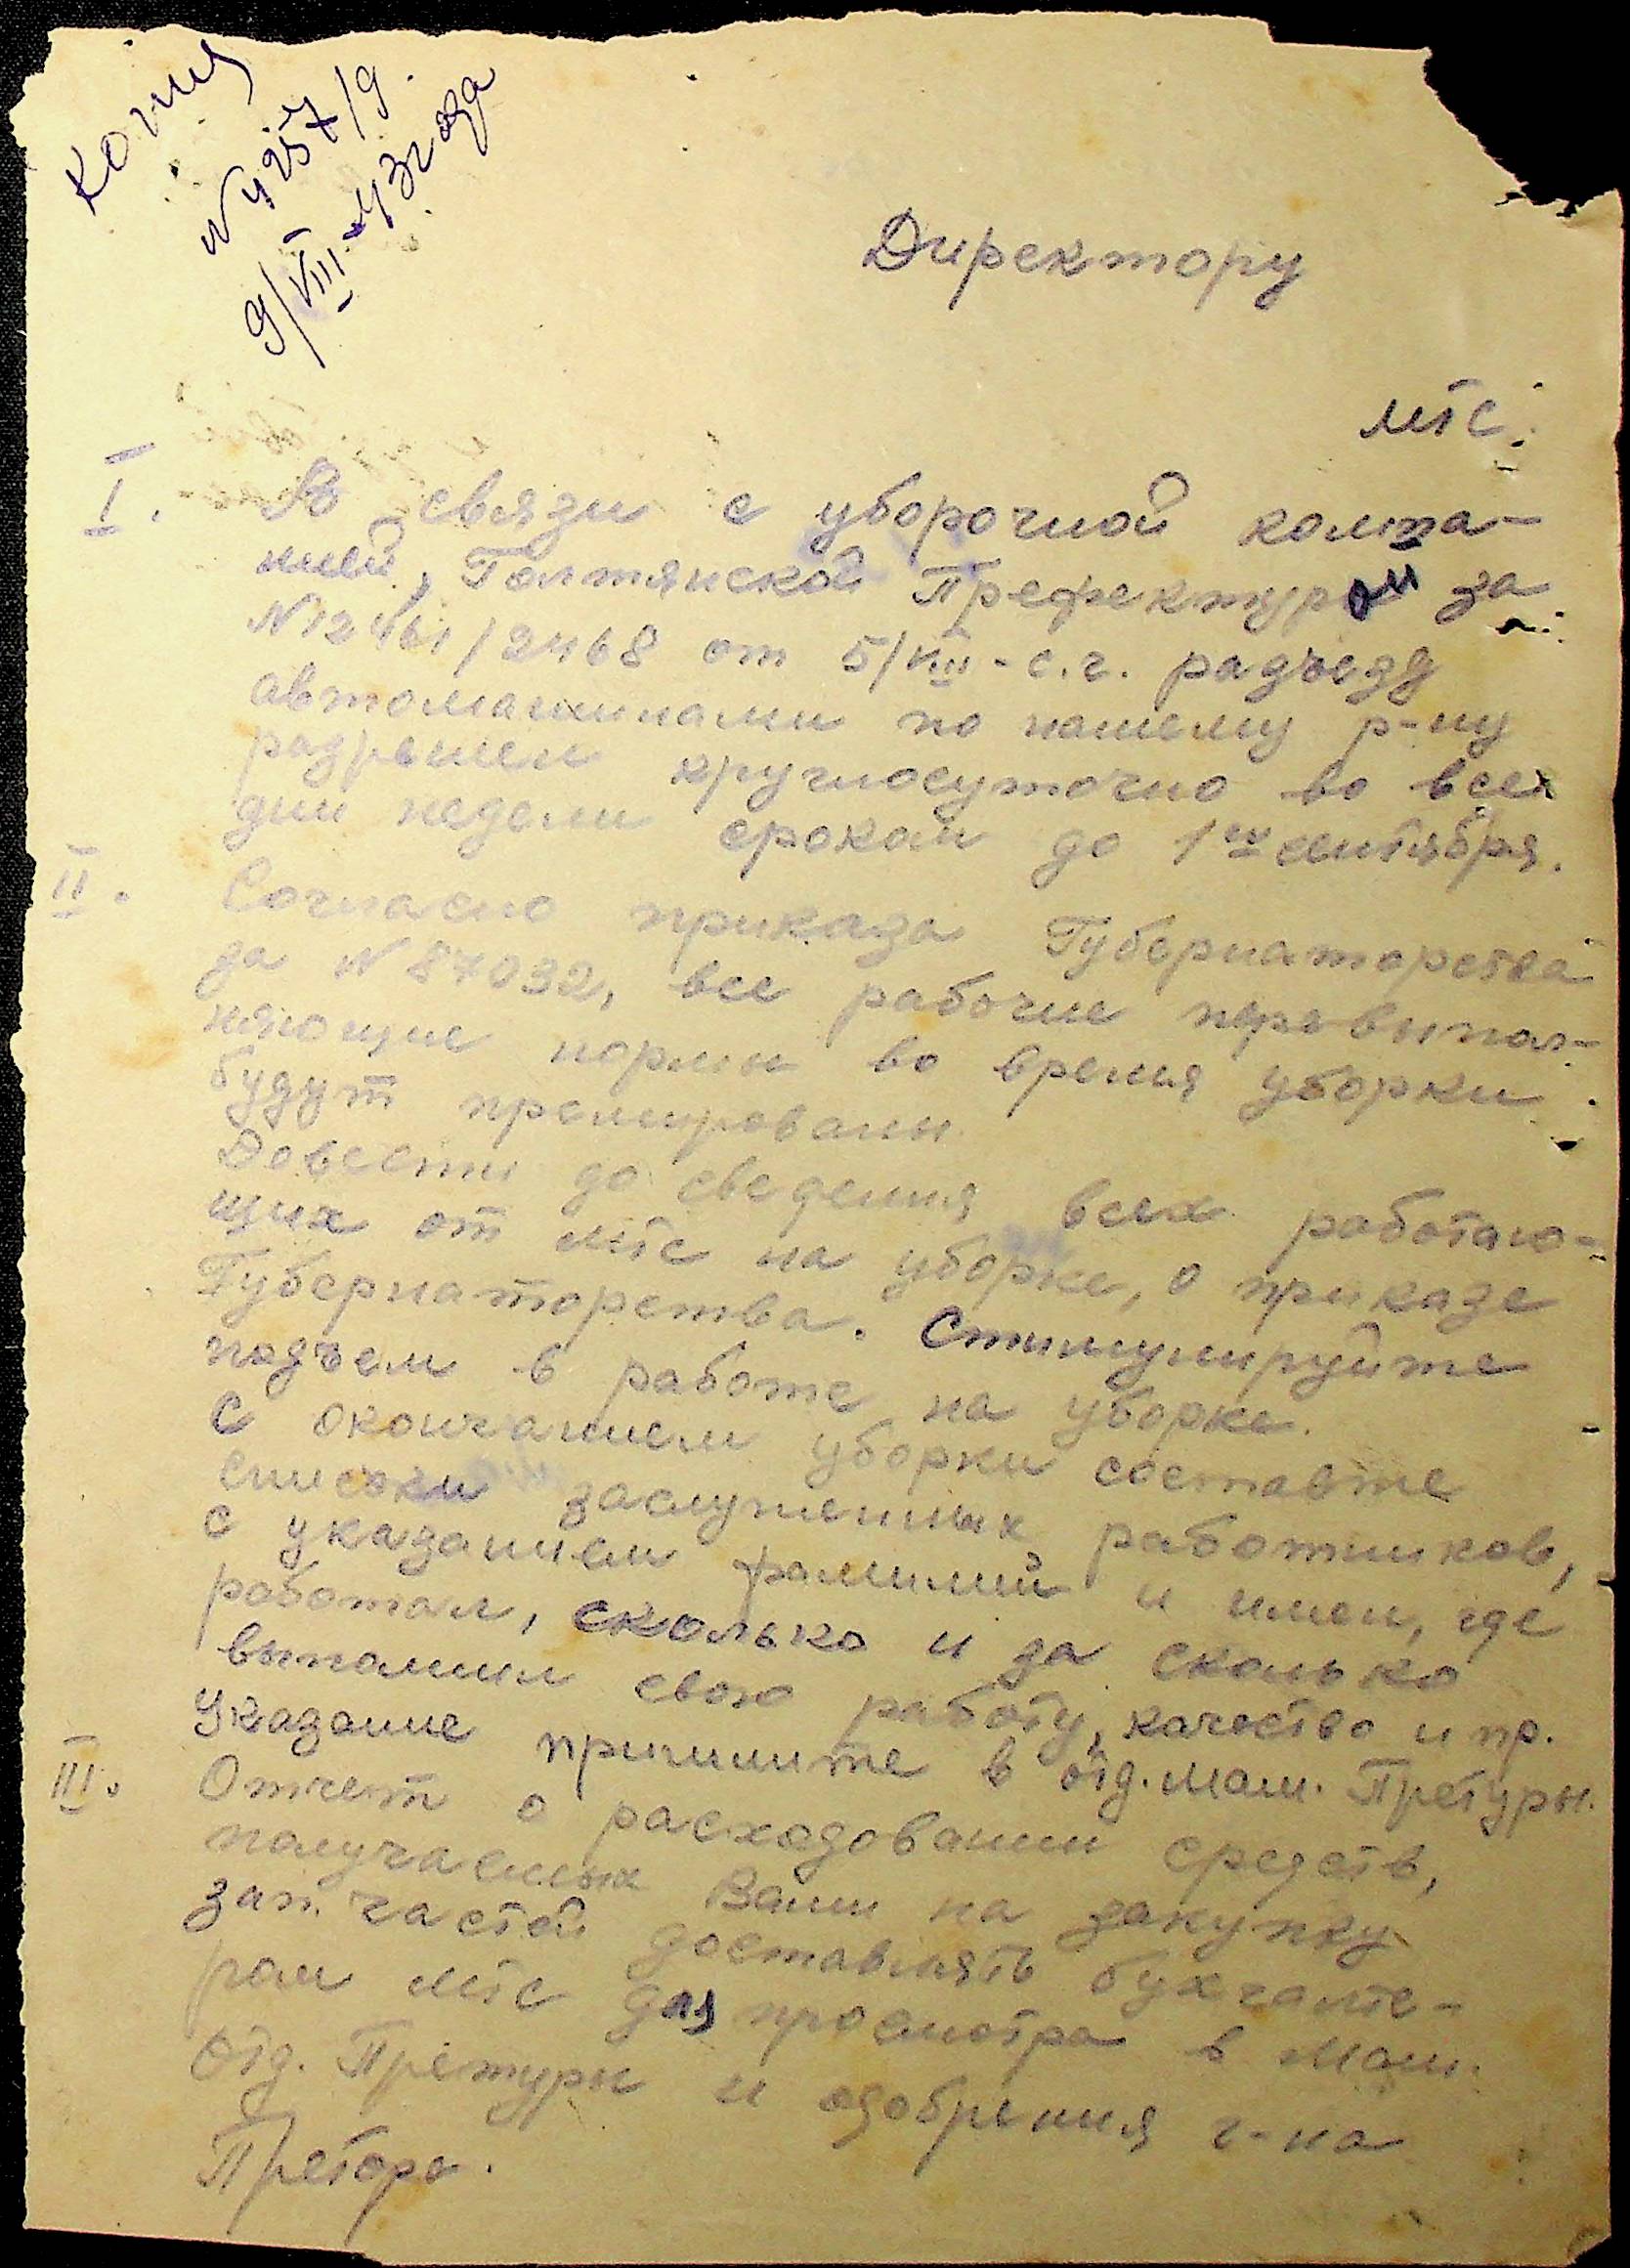 Копия
N 4257/9.
9/VIII-43 года
Директору
МТС.
I. В связи с уборочной компа-
нией, Голтянской Префектурой за
N12461/2468 от 5/VIII - с.г. разъезд
автомашинами по нашему р-ну
разрешен круглосуточно во все
дни недели сроком до 1го сентября.
II. Согласно приказа Губернаторства
за N 87032, все рабочие перевыпол-
няющие нормы во время уборки
будут премированы.
Довести до сведения всех работаю-
щих от МТС на уборке, о приказе
Губернаторства. Стимулируйте
подъем в работе на уборке.
С окончанием уборки составте
списоки заслуженных работников,
с указанием фамилий и имен, где
работал, сколько и за сколько
выполнил свою работу, качество и пр.
Указание пришлите в отд. Маш. Претуры.
III. Отчет о расходовании средств,
получаемых Вами на закупку
зап. частей доставлять бухгалте-
рам МТС для просмотра в Маш.
Отд. Претуры и одобрения г-на
Претора.